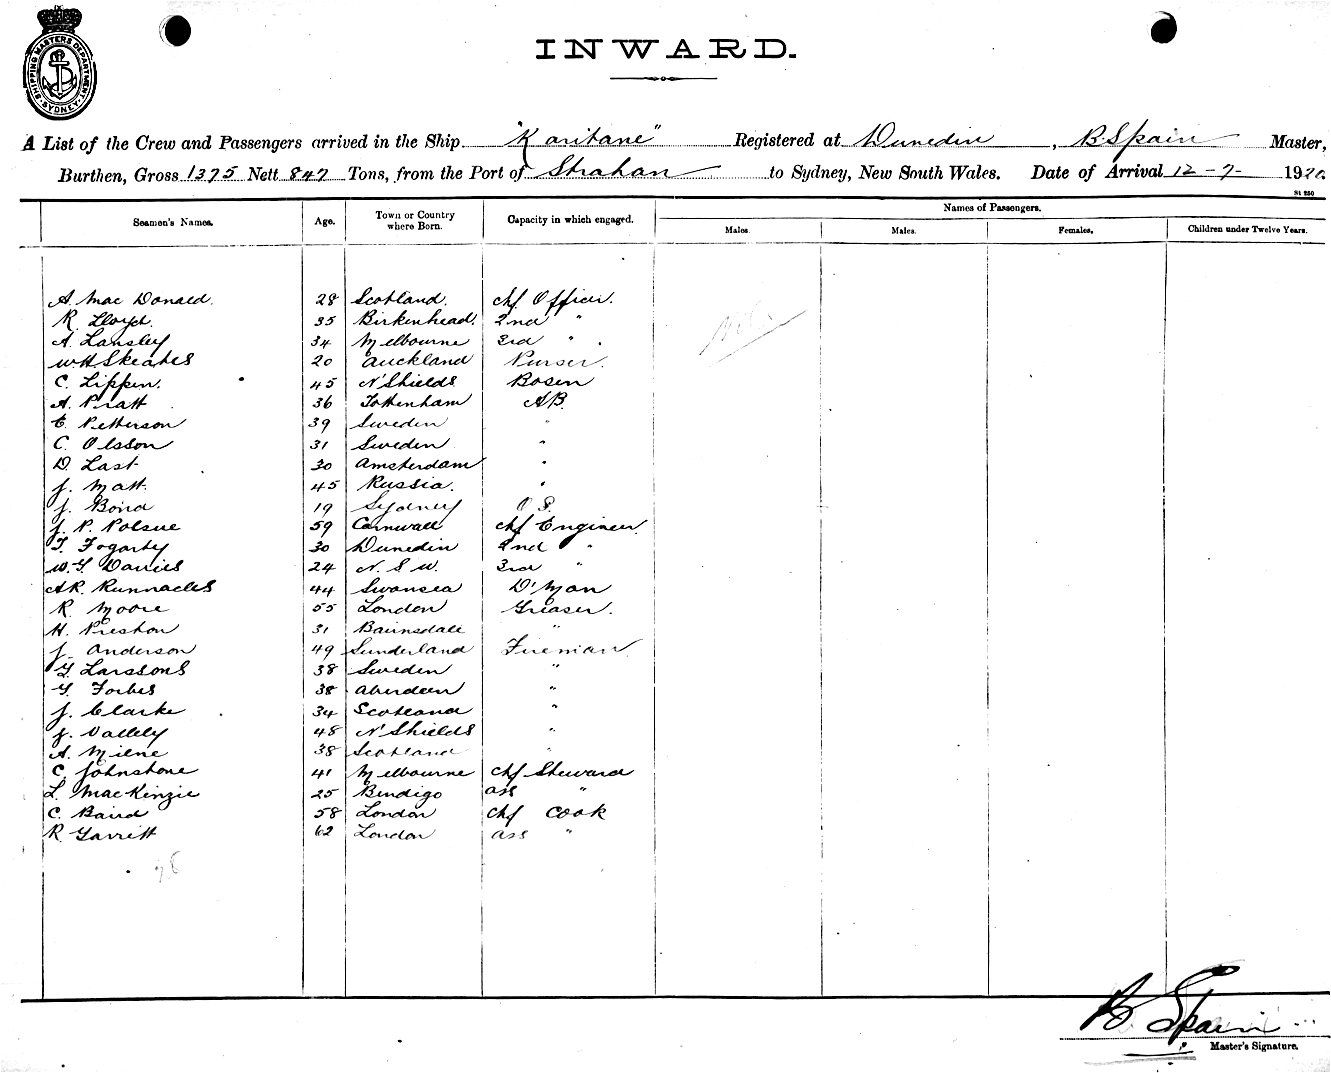 SHIPPING MASTERS DEPARTMENT SYDNEY
INWARD.
A List of the Crew and Passengers arrived in the Ship "Karitane" Registered at Dunedin, B. Spain Master,
Burthen, Gross 1375 Nett 847 Tons, from the Port of Strahan to Sydney, New South Wales. Date of Arrival 12-7- 1920
St 250
Seamen's Names. Age. Town or Country where Born. Capacity in which engaged. Names of Passengers.
Males. Males. Females. Children under Twelve Years.
A. Mac Donald. 28 Scotland. Chf Officer.
R. Lloyd. 35 Birkenhead. 2nd "
A. Lansley 34 Melbourne 3rd "
W H Skeates 20 Auckland Purser.
C. Lippen. 45 N' Shields Bosen
A. Pratt 36 Tottenham AB.
E. Petterson 39 Sweden "
C. Olsson 31 Sweden "
D. Last 30 Amsterdam "
J. Matt. 45 Russia. "
J. Bond 19 Sydney O S.
J. P. Polsue 59 Cornwall Chf Engineer.
T. Fogarty 30 Dunedin 2nd "
W. G Davies 24 N. S W. 3rd "
A R. Runnacles 44 Swansea D'Man
R. Moore 55 London Greaser.
H. Preston 31 Bairnsdale "
J. Anderson 49 Sunderland Fireman.
G. Larssons 38 Sweden "
G. Forbes 38 Aberdeen "
J. Clarke 34 Scotland "
J. Vallely 48 N' Shields "
A. Milne 38 Scotland "
C. Johnstone 41 Melbourne Chf Steward
L. MacKinzie 25 Bendigo ass "
C. Baird 58 London Chf Cook
R. Garrett 62 London ass "
28
B Spain
Master's Signature.